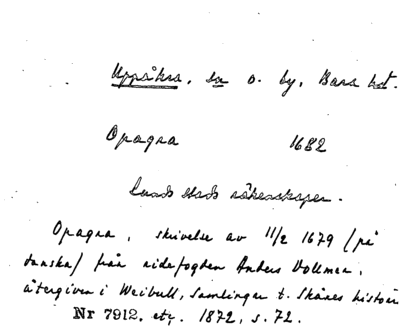 Uppåkra, sn o. by, Bara hd.
Opagra 1682
Lunds stads räkenskaper.
Opagra, skrivelse av 11/2 1679 (på
danska) från ridefogden Anders Vollmer,
återgiven i Weibull, Samlingar t. Skånes histori
Nr 7912. etc. 1872, s. 72.